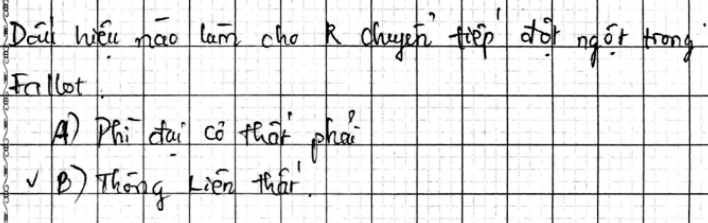 Dấu hiệu nào làm cho R chuyển tiếp đột ngột trong
Fallot.
A) Phì đại cơ thất phải
✓ B) Thông Liên thất.